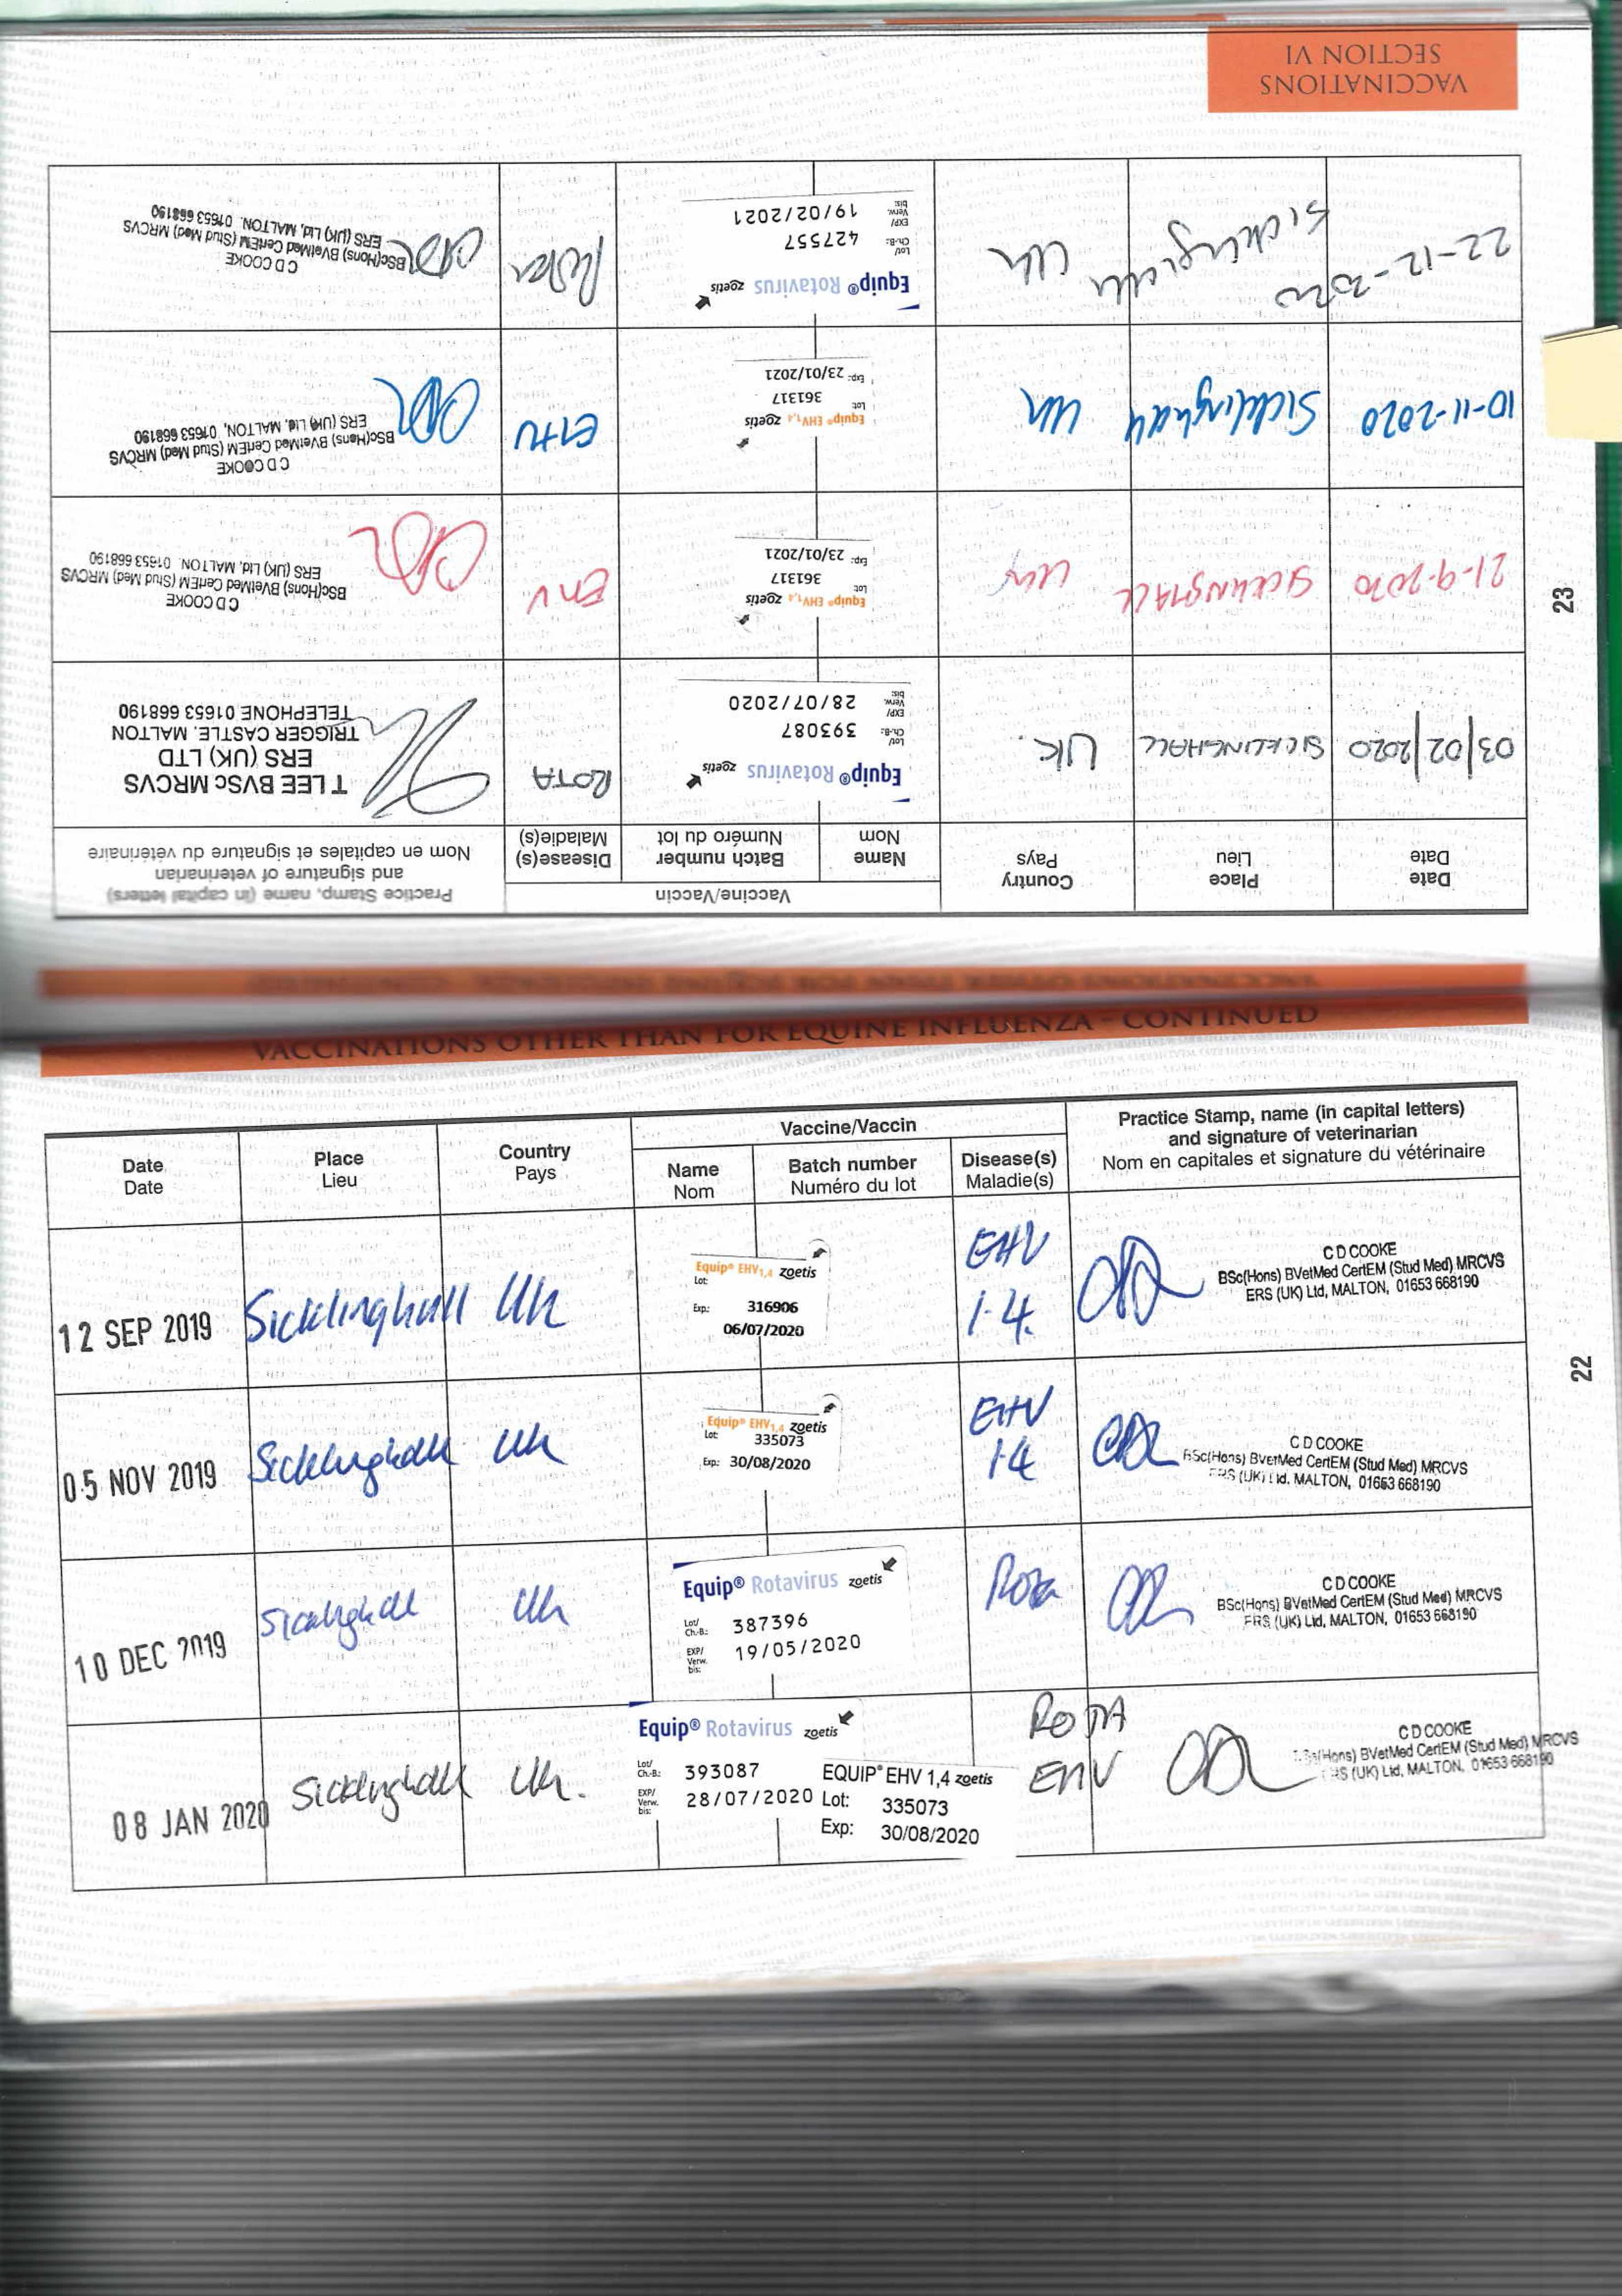 VACCINATIONS
SECTION VI
Date
Date
Place
Lieu
Country
Pays
Vaccine/Vaccin
Name
Nom
Batch number
Numéro du lot
Disease(s)
Maladie(s)
Practice Stamp, name (in capital letters)
and signature of veterinarian
Nom en capitales et signature du vétérinaire
03/02/2020
SICKLINGHALL
UK.
Equip® Rotavirus zoetis
Lot/
Ch.-B.: 393087
EXP/
Verw.
bis: 28/07/2020
ROTA
T LEE BVSc MRCVS
ERS (UK) LTD
TRIGGER CASTLE. MALTON
TELEPHONE 01653 668190
21-9-2020
SICKLINGHALL
UK
Equip® EHV1,4 zoetis
Lot: 361317
Exp: 23/01/2021
EHV
C D COOKE
BSc(Hons) BVetMed CertEM (Stud Med) MRCVS
ERS (UK) Ltd, MALTON. 01653 668190
10-11-2020
Sicklinghall
Uk
Equip® EHV1,4 zoetis
Lot: 361317
Exp: 23/01/2021
EHV
C D COOKE
BSc(Hons) BVetMed CertEM (Stud Med) MRCVS
ERS (UK) Ltd, MALTON, 01653 668190
22-12-2020
Sicklinghall
Uk
Equip® Rotavirus zoetis
Lot/
Ch.-B.: 427557
EXP/
Verw.
bis: 19/02/2021
Rota
C D COOKE
BSc(Hons) BVetMed CertEM (Stud Med) MRCVS
ERS (UK) Ltd, MALTON. 01653 668190
23
VACCINATIONS OTHER THAN FOR EQUINE INFLUENZA – CONTINUED
Date
Date
Place
Lieu
Country
Pays
Vaccine/Vaccin
Name
Nom
Batch number
Numéro du lot
Disease(s)
Maladie(s)
Practice Stamp, name (in capital letters)
and signature of veterinarian
Nom en capitales et signature du vétérinaire
12 SEP 2019
Sicklinghall
Uk
Equip® EHV1,4 zoetis
Lot:
Exp.: 316906
06/07/2020
EHV
1.4.
C D COOKE
BSc(Hons) BVetMed CertEM (Stud Med) MRCVS
ERS (UK) Ltd, MALTON, 01653 668190
05 NOV 2019
Sicklinghall
Uk
Equip® EHV1,4 zoetis
Lot: 335073
Exp.: 30/08/2020
EHV
1.4
C D COOKE
BSc(Hons) BVetMed CertEM (Stud Med) MRCVS
ERS (UK) Ltd. MALTON, 01653 668190
10 DEC 2019
Sicklinghall
Uk
Equip® Rotavirus zoetis
Lot/
Ch.-B.: 387396
EXP/
Verw.
bis: 19/05/2020
Rota
C D COOKE
BSc(Hons) BVetMed CertEM (Stud Med) MRCVS
ERS (UK) Ltd, MALTON, 01653 668190
08 JAN 2020
Sicklinghall
Uk.
Equip® Rotavirus zoetis
Lot/
Ch.-B.: 393087
EXP/
Verw.
bis: 28/07/2020
EQUIP® EHV 1,4 zoetis
Lot: 335073
Exp: 30/08/2020
ROTA
EHV
C D COOKE
BSc(Hons) BVetMed CertEM (Stud Med) MRCVS
ERS (UK) Ltd, MALTON, 01653 668190
22